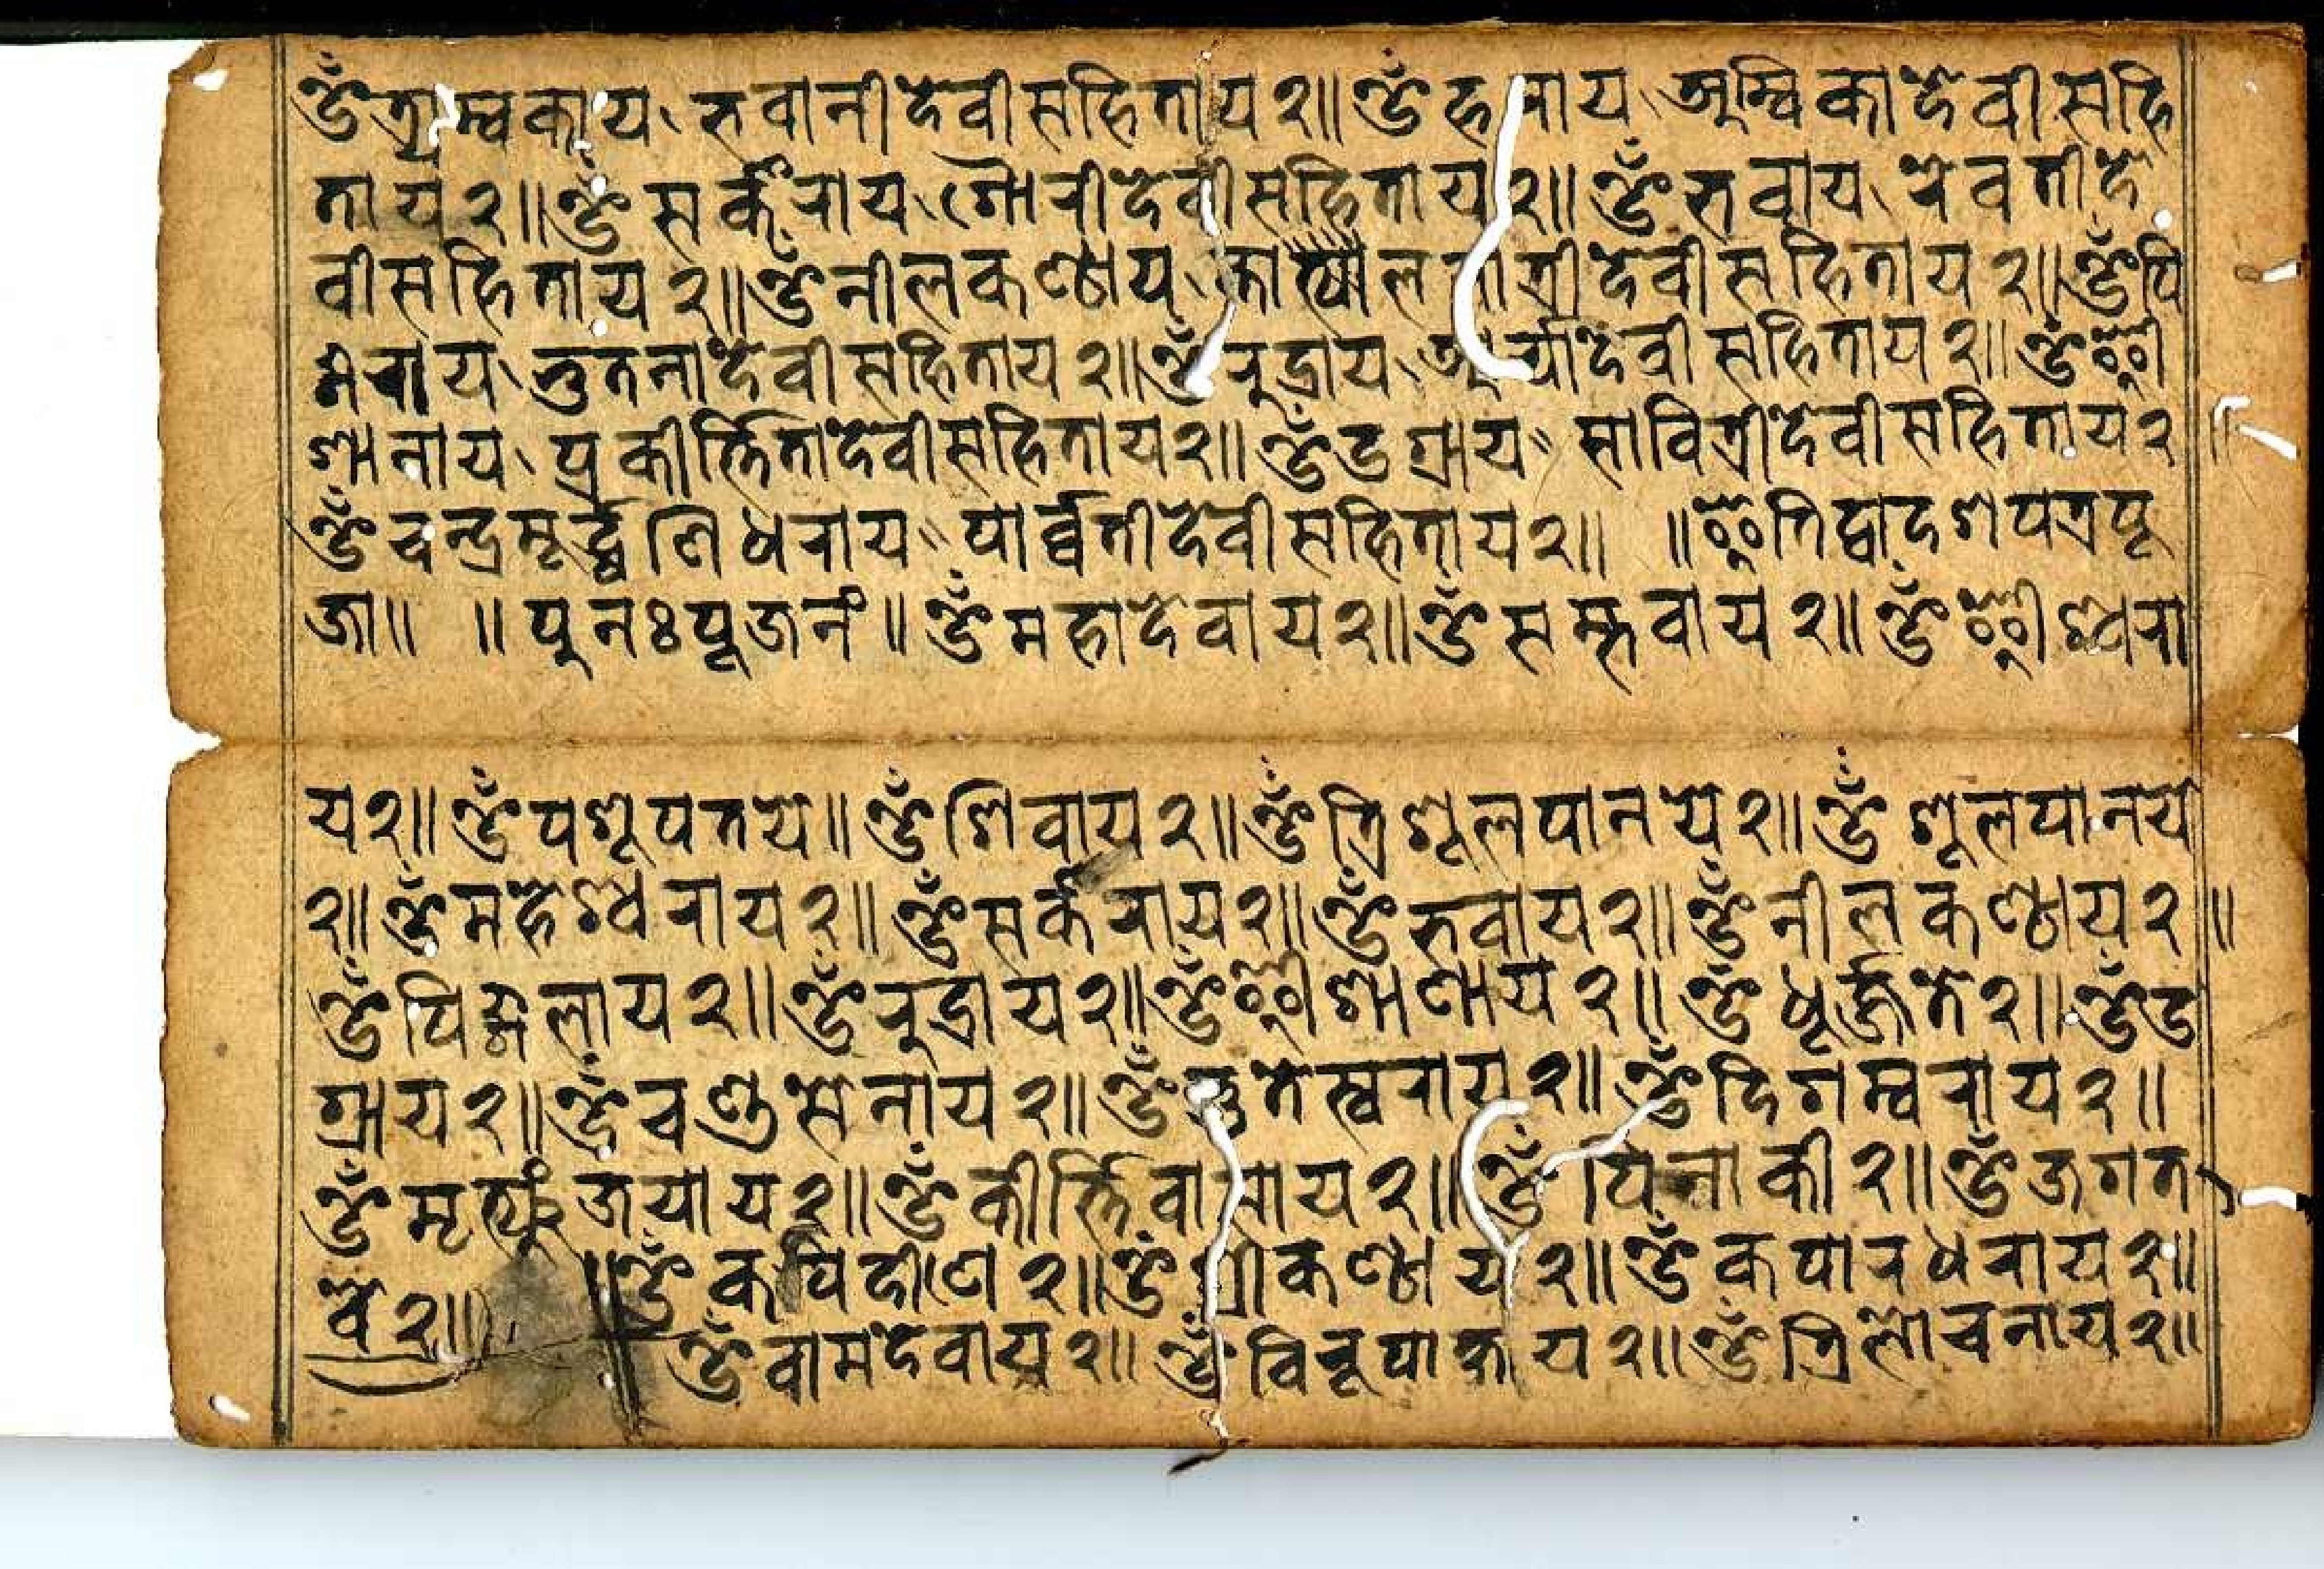 ॐ त्र्यम्बकाय, भवानीदेवीसहिताय२॥ ॐ हराय, अम्बिकादेवीसहि
ताय२॥ ॐ सर्कराय, गौरीदेवीसहिताय२॥ ॐ भवाय, रेवतीदे
वीसहिताय२॥ ॐ नीलकण्ठाय, देवीसहिताय२॥ ॐ पि
ङ्गराय, नुतनादेवीसहिताय२॥ ॐ रुद्राय, आर्यादेवीसहिताय२॥ ॐ ई
शानाय, प्रकीर्त्तितादेवीसहिताय२॥ ॐ उग्राय" सावित्रीदेवीसहिताय२॥
ॐ चन्द्रमूर्द्ध्वणिधराय" पार्व्वतीदेवीसहिताय२॥ ॥ इति द्वादशपत्रपू
जा॥ ॥ पुनः पूजनं॥ ॐ महादेवाय२॥ ॐ सम्भवाय२॥ ॐ ईश्वरा
य२॥ ॐ पशूपतये॥ ॐ शिवाय२॥ ॐ त्रिशूलपानये२॥ ॐ शूलपानये
२॥ ॐ महेश्वराय२॥ ॐ सर्कराय२॥ ॐ भवाय२॥ ॐ नीलकण्ठाय२॥
ॐ पिङ्गलाय२॥ ॐ रुद्राय२॥ ॐ ईशाणाय२॥ ॐ धूर्ज्जते२॥ ॐ उ
ग्राय२॥ ॐ चण्डसेनाय२॥ ॐ भुतेस्वराय२॥ ॐ दिगम्बराय२॥
ॐ मृत्युंजयाय२॥ ॐ कीर्त्तिवासाय२॥ ॐ पिनाकी२॥ ॐ जगत
वे२॥ ॥ ॐ कपिदीणे२॥ ॐ श्रीकण्ठाय२॥ ॐ कपारधराय२॥
ॐ वामदेवाय२॥ ॐ विरूपाक्षाय२॥ ॐ त्रिलोचनाय२॥